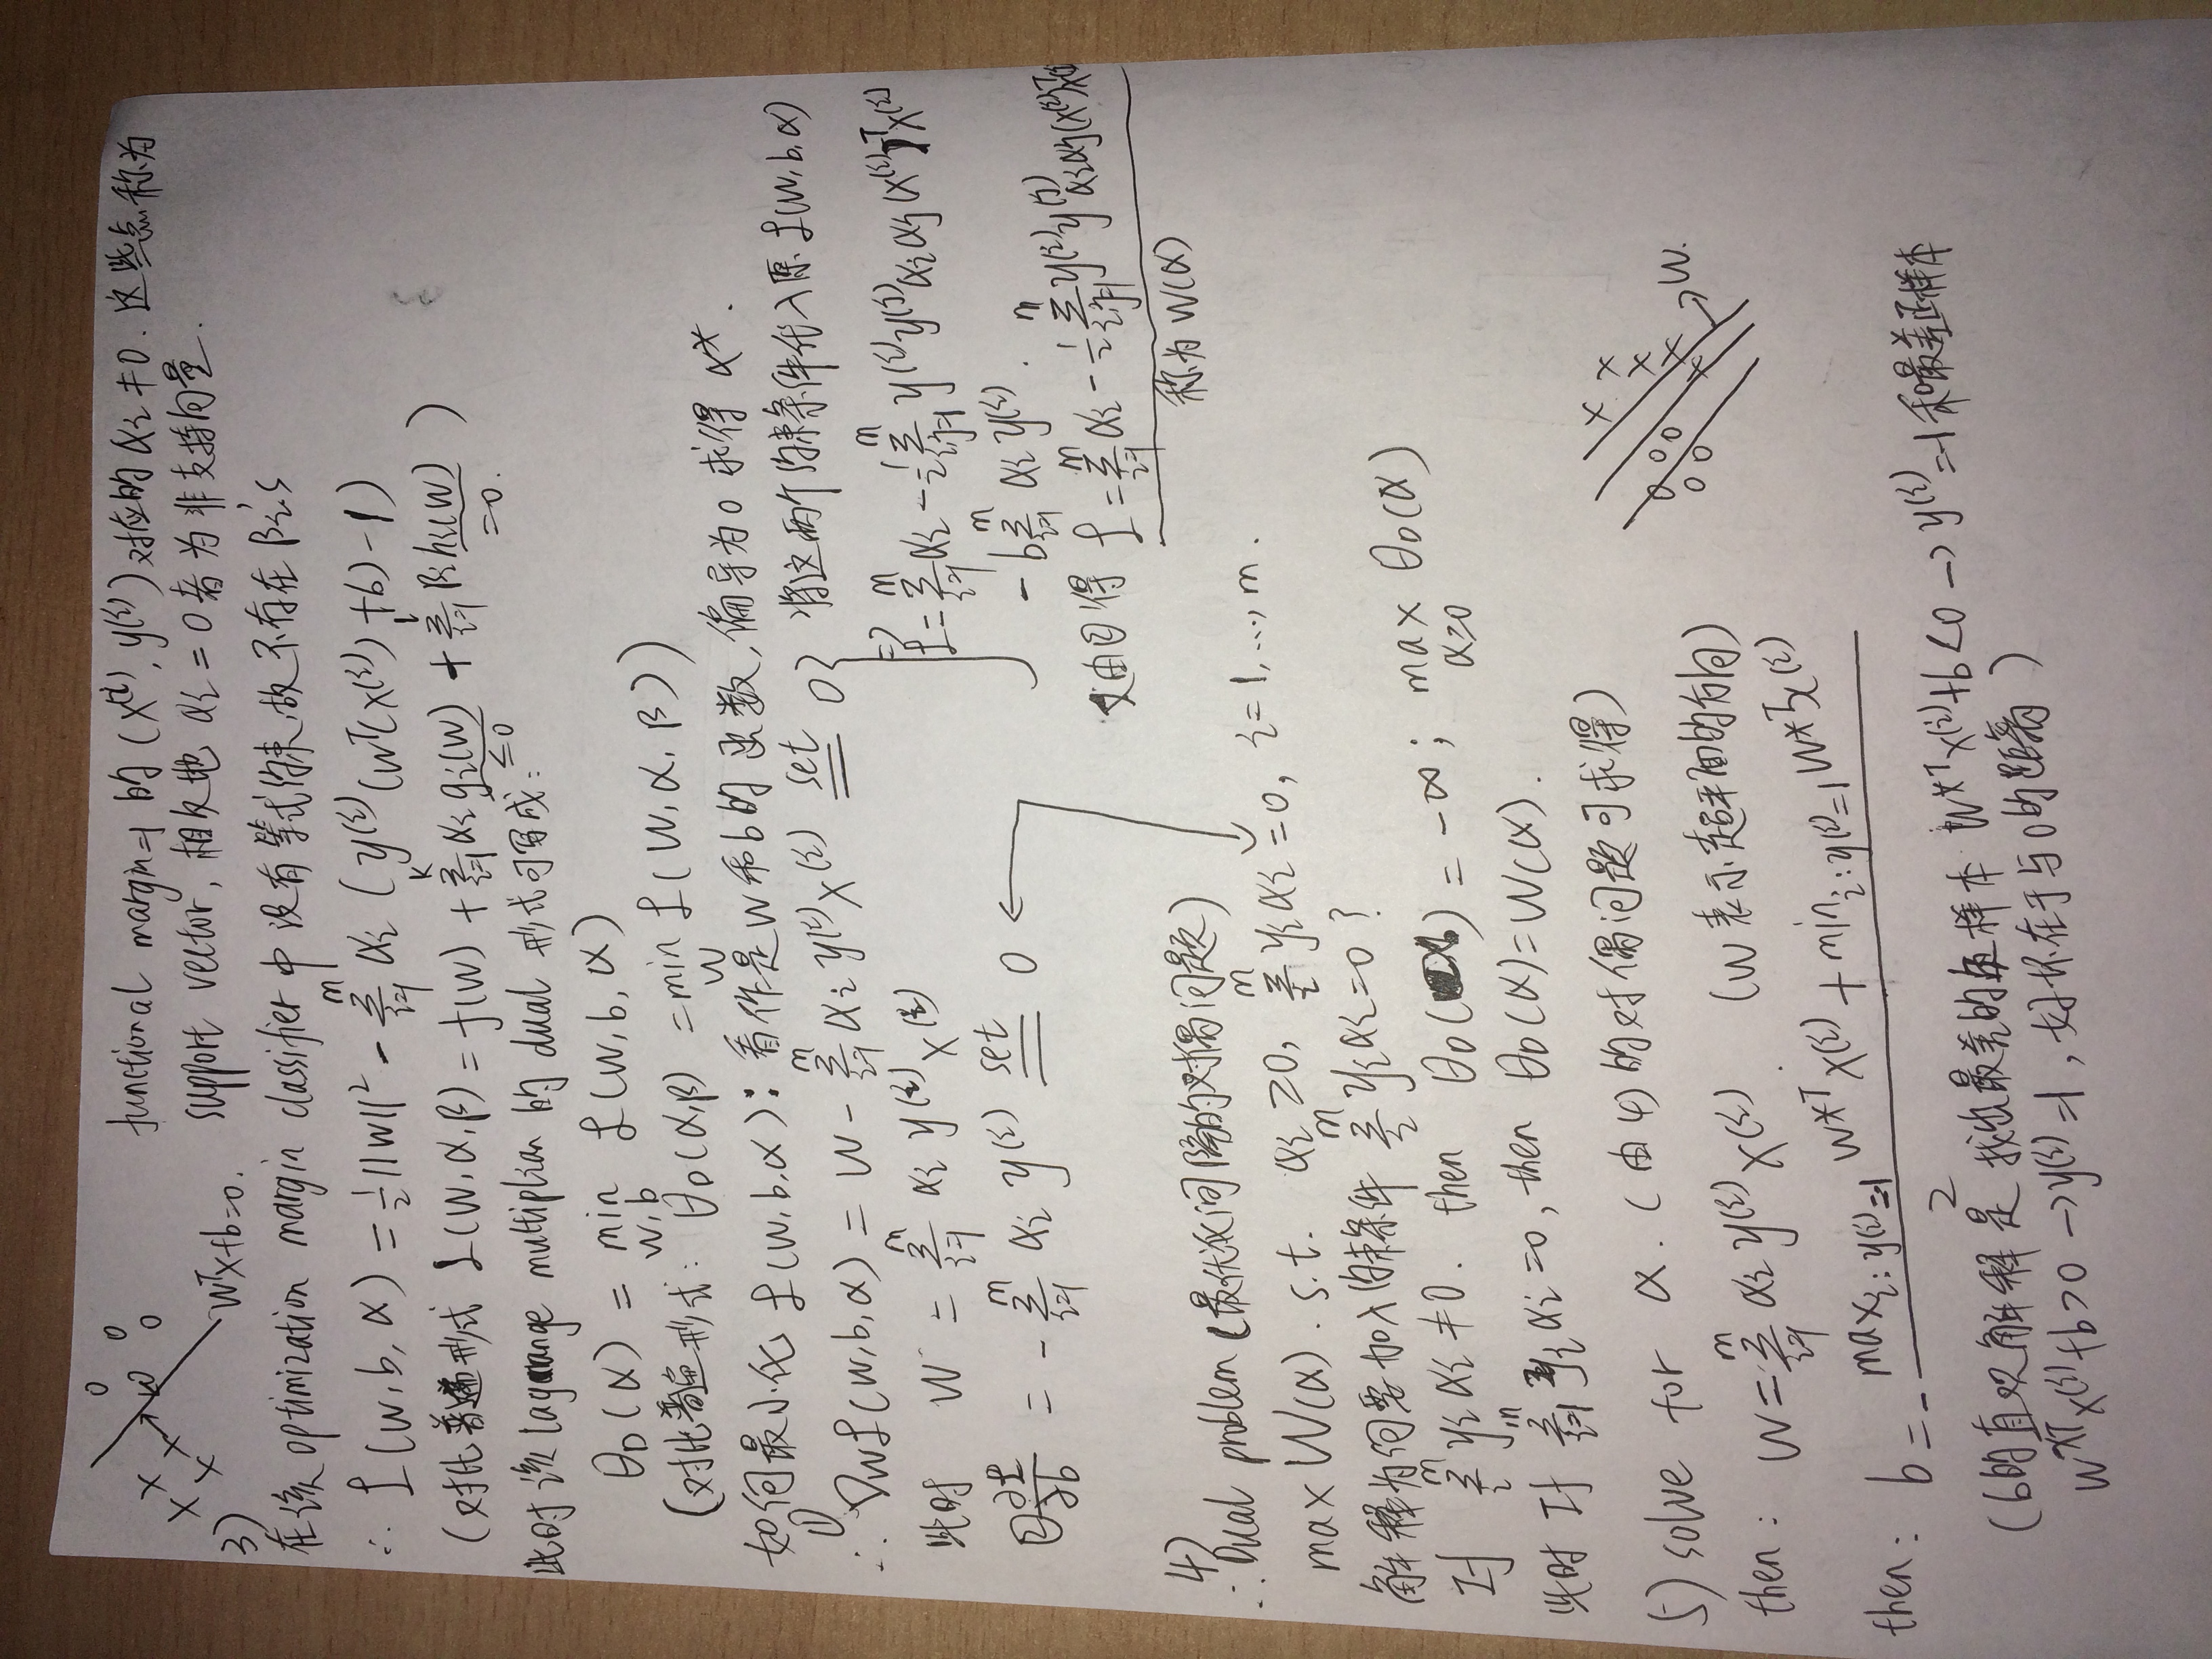 functional margin=1 的 (x^(i), y^(i)) 对应的 αi ≠ 0. 这些点称为
wᵀx+b=0. support vector, 相反地 αi = 0者为非支持向量.
3)
在该 optimization margin classifier 中没有等式约束,故不存在 βi's
∴ L(w,b,α) = ½||w||² - Σ_{i=1}^m αi (y^(i)(wᵀ(x^(i))+b)-1)
(对比普遍形式 L(w,α,β) = f(w) + Σ_{i=1}^k αi gi(w) + Σ_{i=1}^l βi hi(w) )
≤0 =0.
此时该 lagrange multiplian 的 dual 形式可写成:
θD(α) = min_{w,b} L(w,b,α)
(对比普遍形式: θD(α,β) = min_w L(w,α,β))
如何最小化 L(w,b,α): 看作是w和b的函数,偏导为0 求得 α*.
① ∴ ∇wL(w,b,α) = w - Σ_{i=1}^m αi y^(i) x^(i) set= 0
此时 w = Σ_{i=1}^m αi y^(i) x^(i)
② ∂L/∂b = - Σ_{i=1}^m αi y^(i) set= 0
将这两个约束条件代入原 L(w,b,α)
⇒ L = Σ_{i=1}^m αi - ½ Σ_{i,j=1}^m y^(i) y^(j) αi αj (x^(i))ᵀ x^(j)
- b Σ_{i=1}^m αi y^(i).
又由②得 L = Σ_{i=1}^m αi - ½ Σ_{i,j=1}^m y^(i) y^(j) αi αj (x^(i))ᵀ x
称为 W(α)
4)
∴ Dual problem (最优化间隔的对偶问题)
max W(α). s.t. αi ≥0, Σ_i^m yi αi = 0, i=1,...,m.
解释为何要加入约束条件 Σ_i^m yi αi = 0 ?
对 Σ_i^m yi αi ≠ 0. then θD( ) = -∞; max_{α≥0} θD(α)
此时 对 Σ_{i=1}^m yi αi = 0, then θD(α) = W(α).
5) solve for α. (由4)的对偶问题可求得)
then: w = Σ_{i=1}^m αi y^(i) x^(i). (w 表示超平面的方向)
w.
then: b = - (max_{i:y^(i)=-1} w*ᵀx^(i) + min_{i:y^(i)=1} w*ᵀx^(i)) / 2
(b的直观解释是 找出最差的负样本 w*ᵀx^(i)+b<0 → y^(i)=-1 和最差正样本
w*ᵀx^(i)+b>0 → y^(i)=1, 好坏在于与0的距离 )